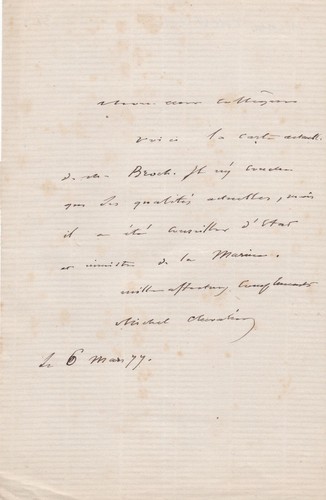 Mon cher Collègue
voici la carte actuelle
de M. Broch. Il n'y
que ses qualités actuelles, mais
il a été conseiller d'Etat
et ministre de la Marine.
mille affectueux compliments
Michel Chevalier
le 6 Mars 77.